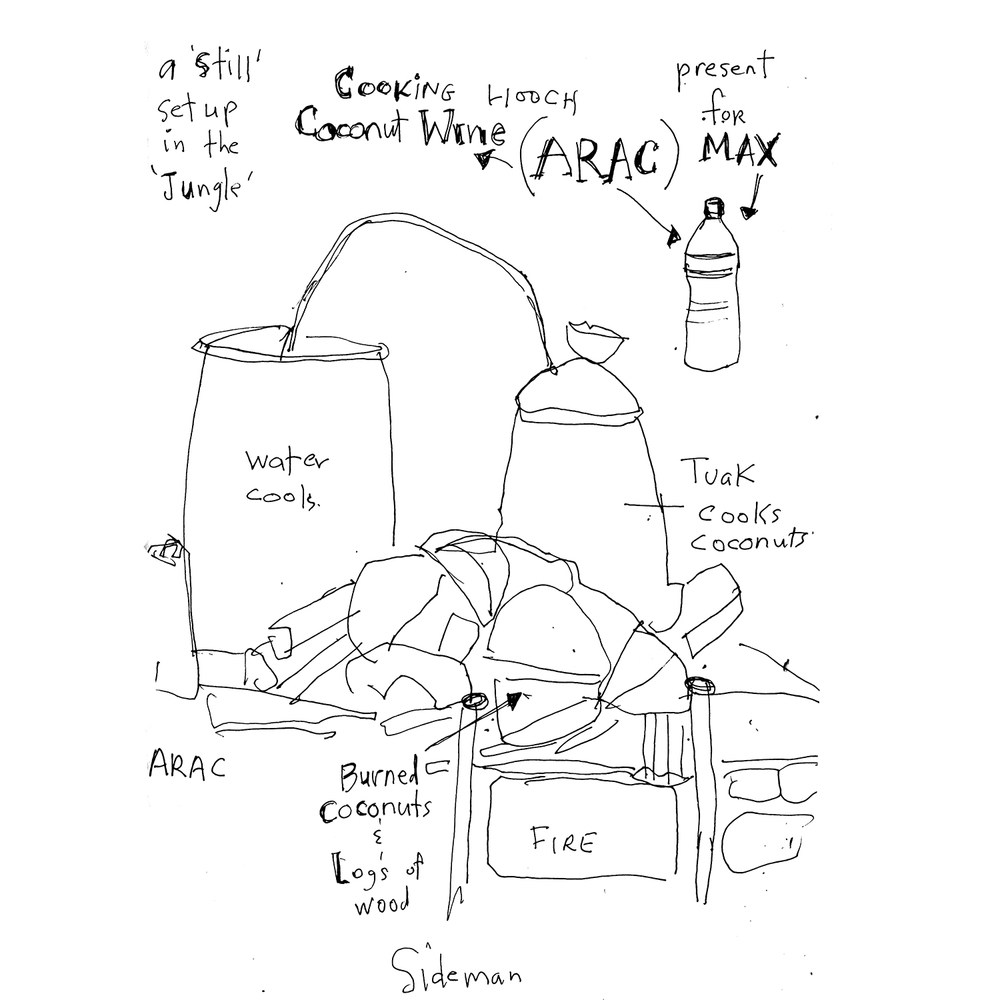 a 'still'
set up
in the
'Jungle'
COOKING HOOCH
Coconut Wine
(ARAC)
present
for
MAX
water
cools.
Tuak
cooks
coconuts
ARAC
Burned
coconuts
&
Logs of
wood
FIRE
Sideman